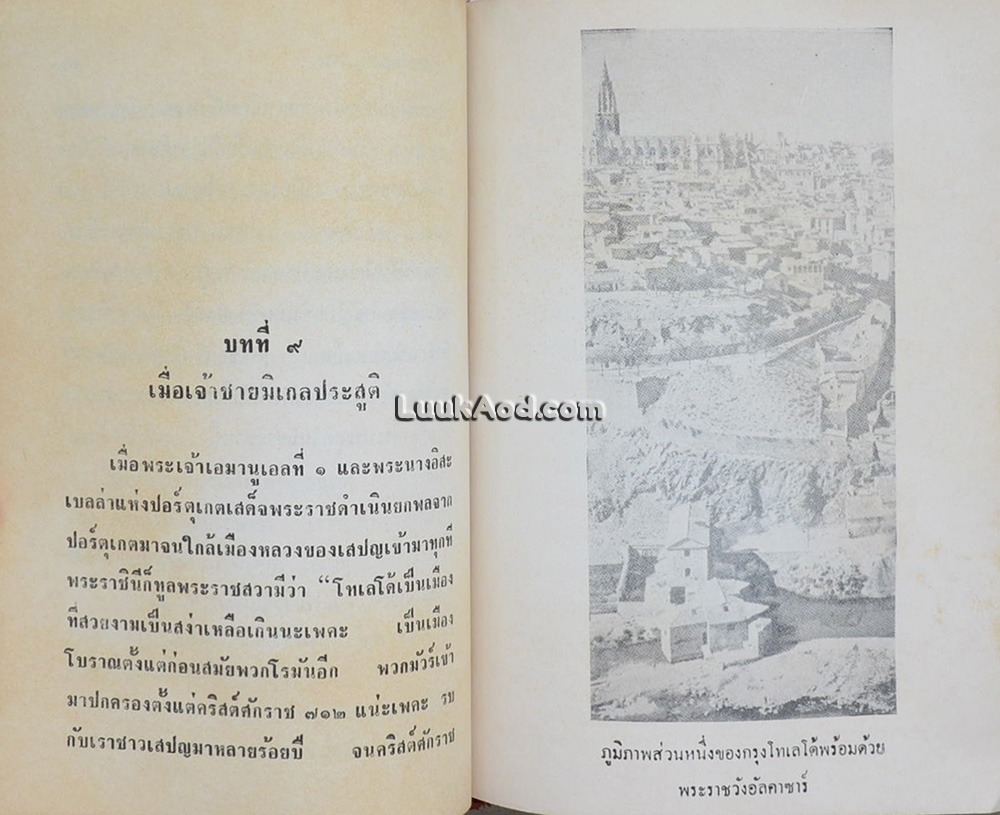 บทที่ ๙
เมื่อเจ้าชายมิเกลประสูติ
เมื่อพระเจ้าเอมานูเอลที่ ๑ และพระนางอิสะ
เบลล่าแห่งปอร์ตุเกตเสด็จพระราชดำเนินยกพลจาก
ปอร์ตุเกตมาจนใกล้เมืองหลวงของเสปญเข้ามาทุกที
พระราชินีก็ทูลพระราชสวามีว่า “โทเลโด้เป็นเมือง
ที่สวยงามเป็นสง่าเหลือเกินนะเพคะ เป็นเมือง
โบราณตั้งแต่ก่อนสมัยพวกโรมันอีก พวกมัวร์เข้า
มาปกครองตั้งแต่คริสต์ศักราช ๗๑๒ แน่ะเพคะ รบ
กับเราชาวเสปญมาหลายร้อยปี จนคริสต์ศักราช
LuukAod.com
ภูมิภาพส่วนหนึ่งของกรุงโทเลโด้พร้อมด้วย
พระราชวังอัลคาซาร์